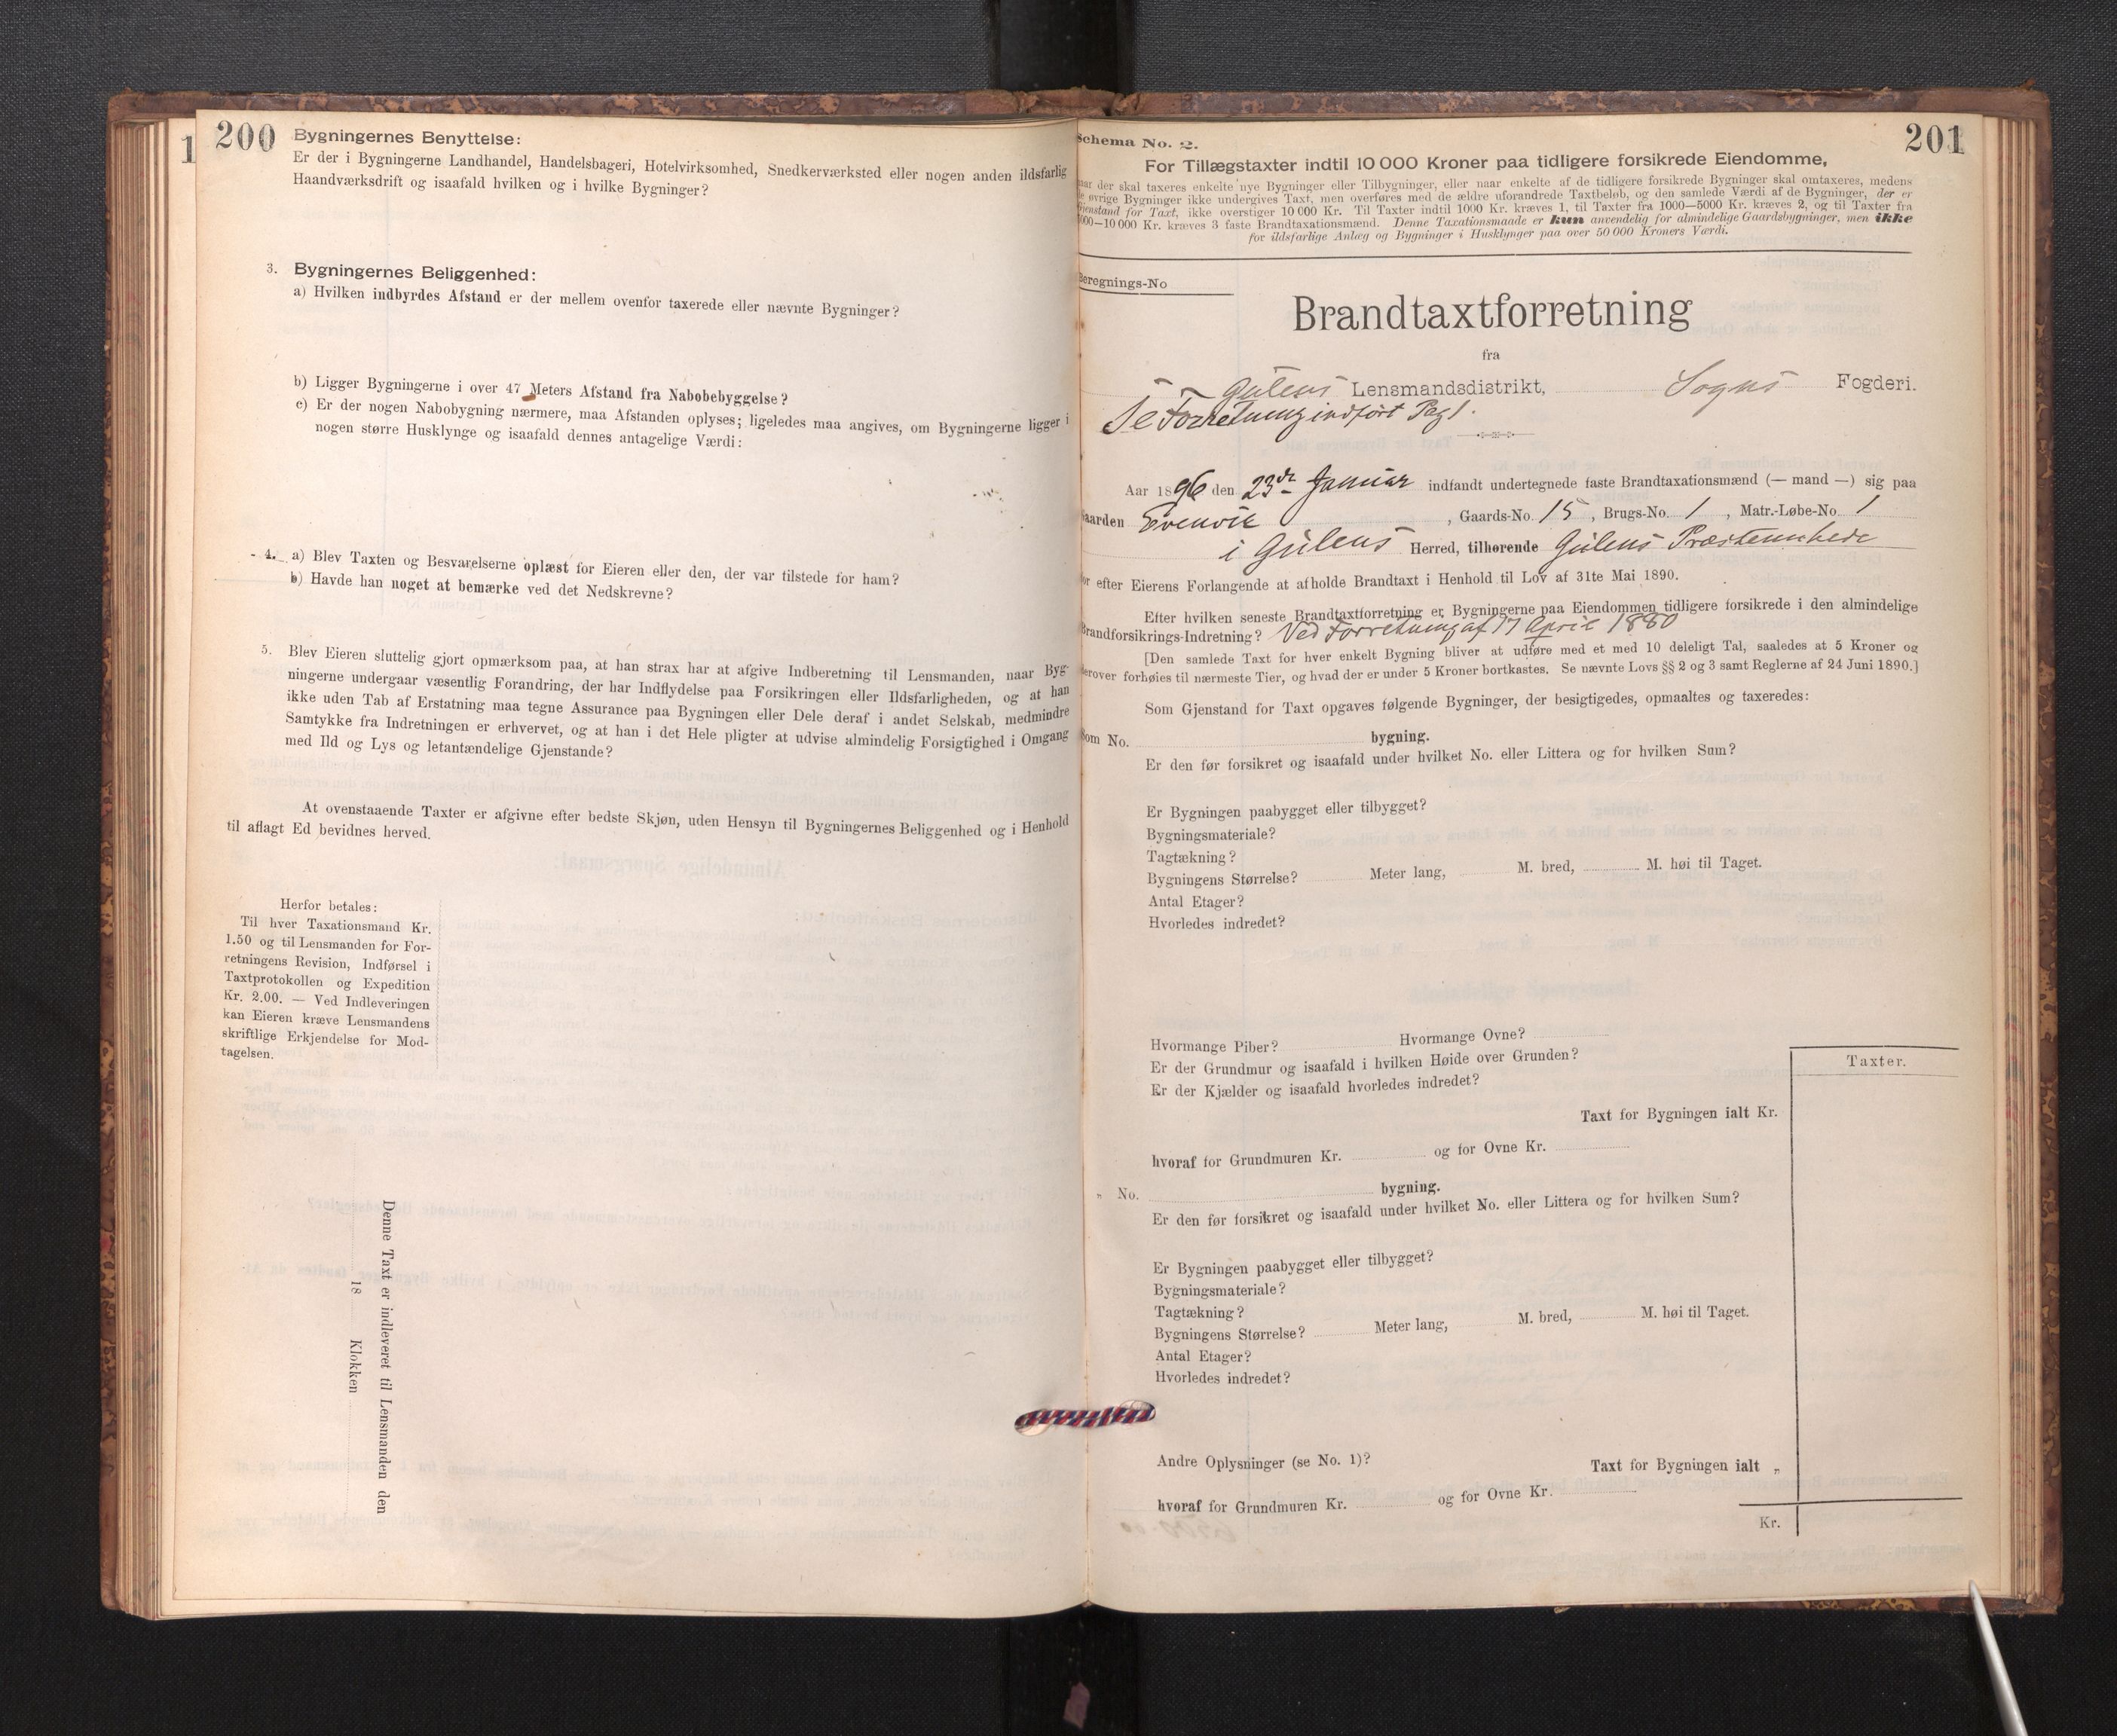 1
200
Bygningernes Benyttelse:
Er der i Bygningerne Landhandel, Handelsbageri, Hotelvirksomhed, Snedkerværksted eller nogen anden ildsfarlig
Haandværksdrift og isaafald hvilken og i hvilke Bygninger?
3. Bygningernes Beliggenhed:
a) Hvilken indbyrdes Afstand er der mellem ovenfor taxerede eller nævnte Bygninger?
b) Ligger Bygningerne i over 47 Meters Afstand fra Nabobebyggelse?
c) Er der nogen Nabobygning nærmere, maa Afstanden oplyses; ligeledes maa angives, om Bygningerne ligger i
nogen større Husklynge og isaafald dennes antagelige Værdi:
4. a) Blev Taxten og Besvarelserne oplæst for Eieren eller den, der var tilstede for ham?
b) Havde han noget at bemærke ved det Nedskrevne?
5. Blev Eieren sluttelig gjort opmærksom paa, at han strax har at afgive Indberetning til Lensmanden, naar Byg-
ningerne undergaar væsentlig Forandring, der har Indflydelse paa Forsikringen eller Ildsfarligheden, og at han
ikke uden Tab af Erstatning maa tegne Assurance paa Bygningen eller Dele deraf i andet Selskab, medmindre
Samtykke fra Indretningen er erhvervet, og at han i det Hele pligter at udvise almindelig Forsigtighed i Omgang
med Ild og Lys og letantændelige Gjenstande?
At ovenstaaende Taxter er afgivne efter bedste Skjøn, uden Hensyn til Bygningernes Beliggenhed og i Henhold
til aflagt Ed bevidnes herved.
Herfor betales:
Til hver Taxationsmand Kr.
1.50 og til Lensmanden for For-
retningens Revision, Indførsel i
Taxtprotokollen og Expedition
Kr. 2.00. — Ved Indleveringen
kan Eieren kræve Lensmandens
skriftlige Erkjendelse for Mod-
tagelsen.
Denne Taxt er indleveret til Lensmanden den
18 Klokken
201
Schema No. 2.
For Tillægstaxter indtil 10 000 Kroner paa tidligere forsikrede Eiendomme,
naar der skal taxeres enkelte nye Bygninger eller Tilbygninger, eller naar enkelte af de tidligere forsikrede Bygninger skal omtaxeres, medens
de øvrige Bygninger ikke undergives Taxt, men overføres med de ældre uforandrede Taxtbeløb, og den samlede Værdi af de Bygninger, der er
Gjenstand for Taxt, ikke overstiger 10 000 Kr. Til Taxter indtil 1000 Kr. kræves 1, til Taxter fra 1000—5000 Kr. kræves 2, og til Taxter fra
5000—10 000 Kr. kræves 3 faste Brandtaxationsmænd. Denne Taxationsmaade er kun anvendelig for almindelige Gaardsbygninger, men ikke
for ildsfarlige Anlæg og Bygninger i Husklynger paa over 50 000 Kroners Værdi.
Beregnings-No
Brandtaxtforretning
fra
Gulens Lensmandsdistrikt, Sogns Fogderi.
Se Forretning indført Pag 1.
Aar 1896 den 23de Januar indfandt undertegnede faste Brandtaxationsmænd (— mand —) sig paa
Gaarden Evenvik, Gaards-No. 15, Brugs-No. 1, Matr.-Løbe-No 1
i Gulens Herred, tilhørende Gulens Præsteembede
for efter Eierens Forlangende at afholde Brandtaxt i Henhold til Lov af 31te Mai 1890.
Efter hvilken seneste Brandtaxtforretning er Bygningerne paa Eiendommen tidligere forsikrede i den almindelige
Brandforsikrings-Indretning? Ved Forretning af 17 April 1880
[Den samlede Taxt for hver enkelt Bygning bliver at udføre med et med 10 deleligt Tal, saaledes at 5 Kroner og
derover forhøies til nærmeste Tier, og hvad der er under 5 Kroner bortkastes. Se nævnte Lovs §§ 2 og 3 samt Reglerne af 24 Juni 1890.]
Som Gjenstand for Taxt opgaves følgende Bygninger, der besigtigedes, opmaaltes og taxeredes:
Som No. bygning.
Er den før forsikret og isaafald under hvilket No. eller Littera og for hvilken Sum?
Er Bygningen paabygget eller tilbygget?
Bygningsmateriale?
Tagtækning?
Bygningens Størrelse? Meter lang, M. bred, M. høi til Taget.
Antal Etager?
Hvorledes indredet?
Hvormange Piber? Hvormange Ovne?
Er der Grundmur og isaafald i hvilken Høide over Grunden?
Er der Kjælder og isaafald hvorledes indredet?
Taxter.
Taxt for Bygningen ialt Kr.
hvoraf for Grundmuren Kr. og for Ovne Kr.
„ No. bygning.
Er den før forsikret og isaafald under hvilket No. eller Littera og for hvilken Sum?
Er Bygningen paabygget eller tilbygget?
Bygningsmateriale?
Tagtækning?
Bygningens Størrelse? Meter lang, M. bred, M. høi til Taget.
Antal Etager?
Hvorledes indredet?
Andre Oplysninger (se No. 1)? Taxt for Bygningen ialt „
hvoraf for Grundmuren Kr. og for Ovne Kr.
Kr.